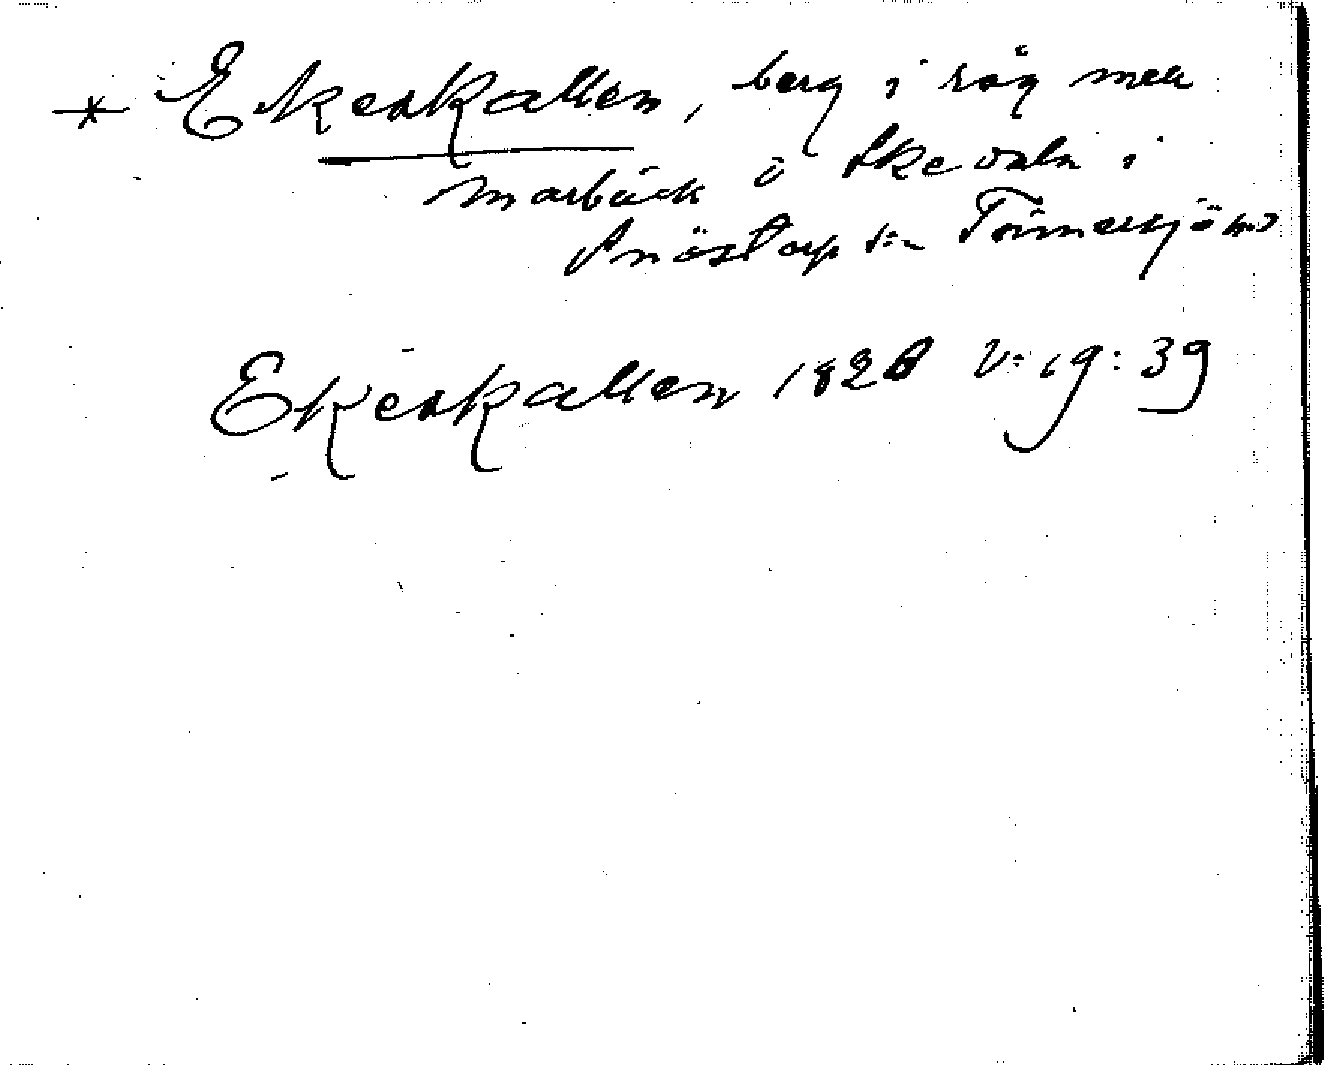 * Ekeskallen, berg i råg med
Marbäck o Skedala i
Snöstorp s:n Tönnersjö hd
Ekeskallen 1828 V:19:39